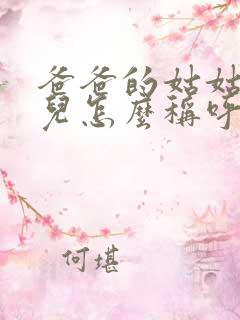 爸爸的姑姑
兒怎麼稱呼
何堪